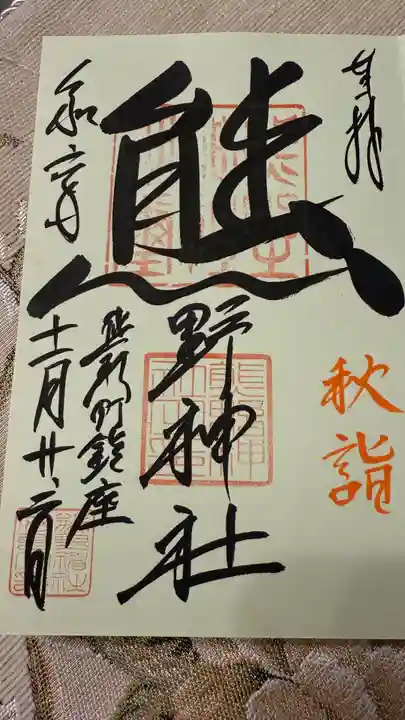 奉拝
秋詣
熊野神社
熊野町鎮座
令和六年
十一月廿日